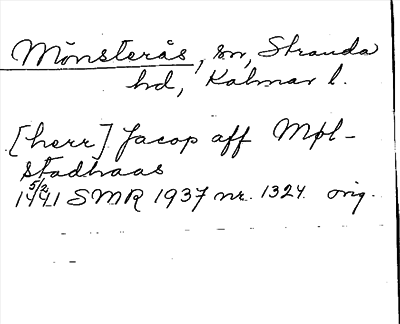 Mönsterås, sn, Stranda
hd, Kalmar l.
[herr] Jacop aff Møl-
stadhaas
5/2
1441 SMR 1937 nr. 1324. orig.